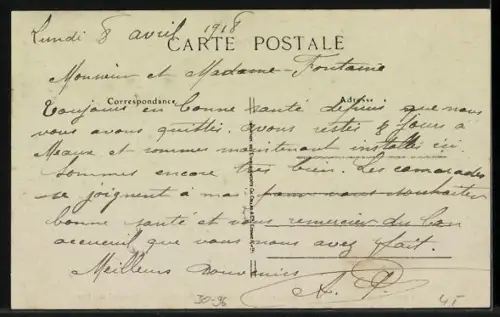 Lundi 8 avril 1918
CARTE POSTALE
Monsieur et Madame Fontaine
Correspondance Adresse
Toujours en bonne santé depuis que nous
vous avons quittés. avons restés 8 jours à
Meaux et sommes maintenant installés ici.
Sommes encore très bien. Les camarades
se joignent à moi pour vous souhaiter
bonne santé et vous remercier du bon
accueuil que vous nous avez fait.
Meilleurs souvenirs
A. P.
30-96
45